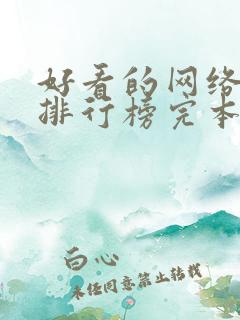 好看的网络
排行榜完本
白心
未经同意禁止转载